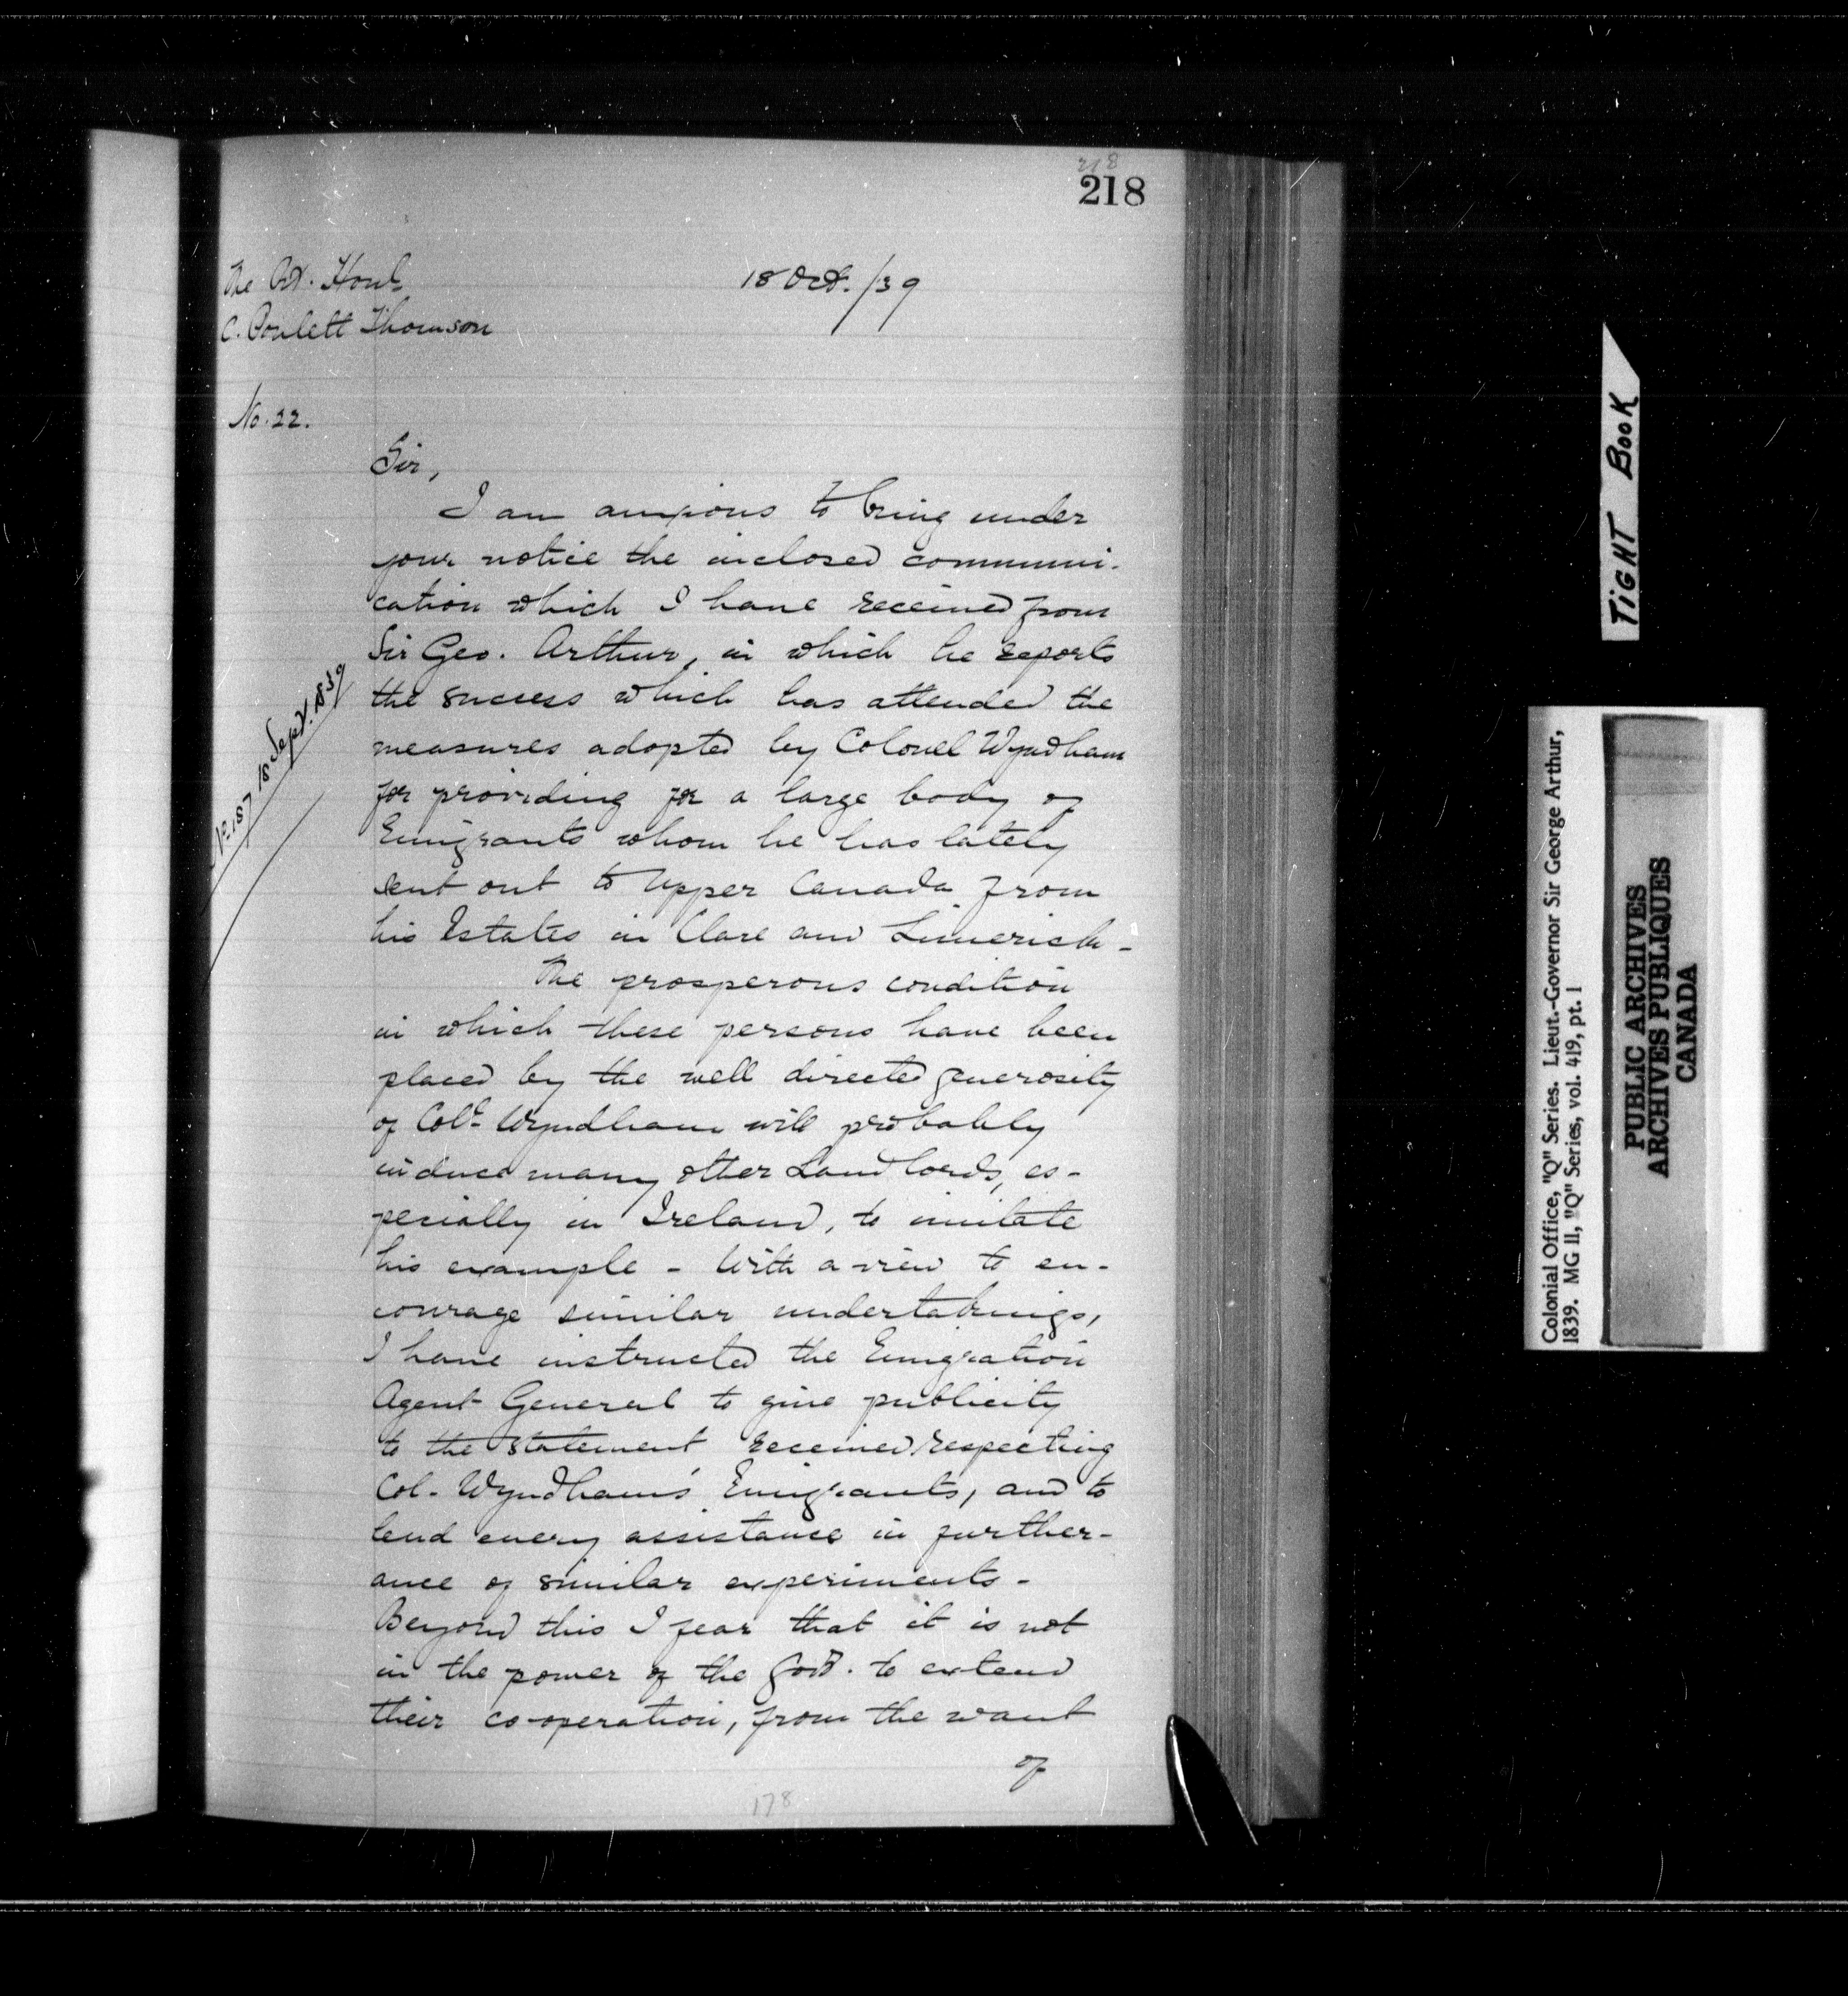 218
218
The Rt. Honl.
C. Poulett Thomson
18 Oct. /39
No. 22.
Sir,
I am anxious to bring under
your notice the inclosed communi-
cation which I have received from
Sir Geo. Arthur, in which he reports
the success which has attended the
measures adopted by Colonel Wyndham
for providing for a large body of
Emigrants whom he has lately
sent out to Upper Canada from
his Estates in Clare and Limerick -
No. 187 18 Sept. 1839
The prosperous condition
in which these persons have been
placed by the well directed generosity
of Coll. Wyndham will probably
induce many other Landlords, es-
pecially in Ireland, to imitate
his example - With a view to en-
courage similar undertakings,
I have instructed the Emigration
Agent General to give publicity
to the statement received respecting
Col. Wyndham's Emigrants, and to
lend every assistance in further-
ance of similar experiments -
Beyond this I fear that it is not
in the power of the Govt. to extend
their co-operation, from the want
of
178
TIGHT BOOK
Colonial Office, "Q" Series. Lieut.-Governor Sir George Arthur,
1839. MG 11, "Q" Series, vol. 419, pt. 1
PUBLIC ARCHIVES
ARCHIVES PUBLIQUES
CANADA